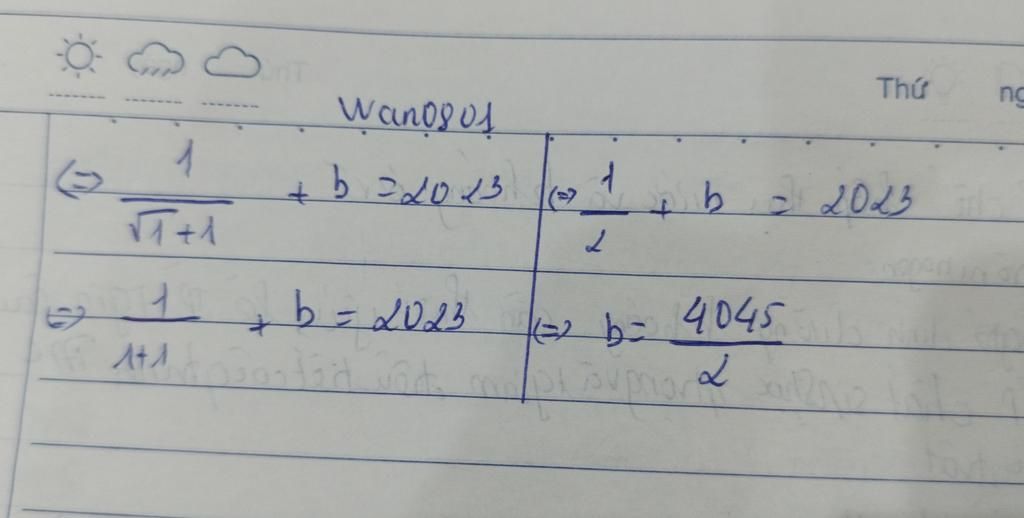 Thứ ng
Wan0801
<=> 1/(√1+1) + b = 2023
<=> 1/(1+1) + b = 2023
<=> 1/2 + b = 2023
<=> b = 4045/2